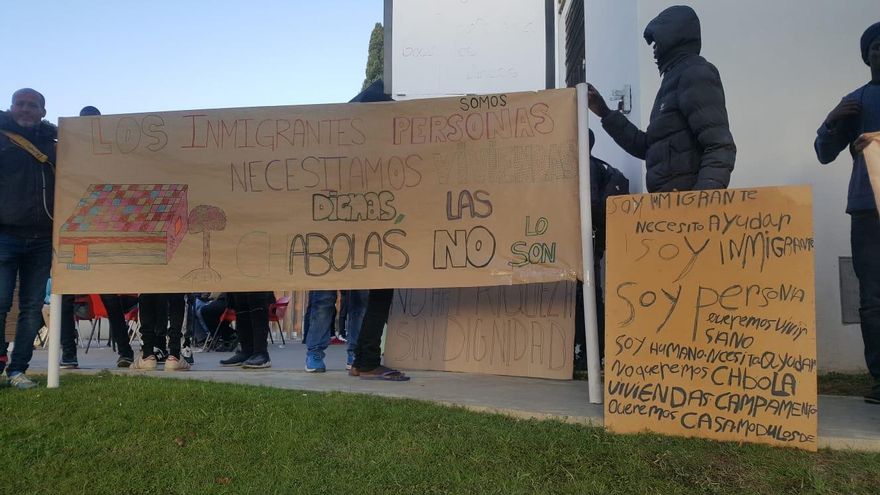 LOS INMIGRANTES SOMOS PERSONAS
NECESITAMOS VIVIENDAS
DIGNAS, LAS
CHABOLAS NO LO SON
NO HAY RIQUEZA
SIN DIGNIDAD
SOY INMIGRANTE
NECESITO AYUDAR
SOY INMIGRANTE
SOY PERSONA
QUEREMOS VIVIR
SANO
SOY HUMANO NECESITO AYUDAR
NO QUEREMOS CHBOLA
VIVIENDAS CAMPAMENTO
QUEREMOS CASA MODULOS DE